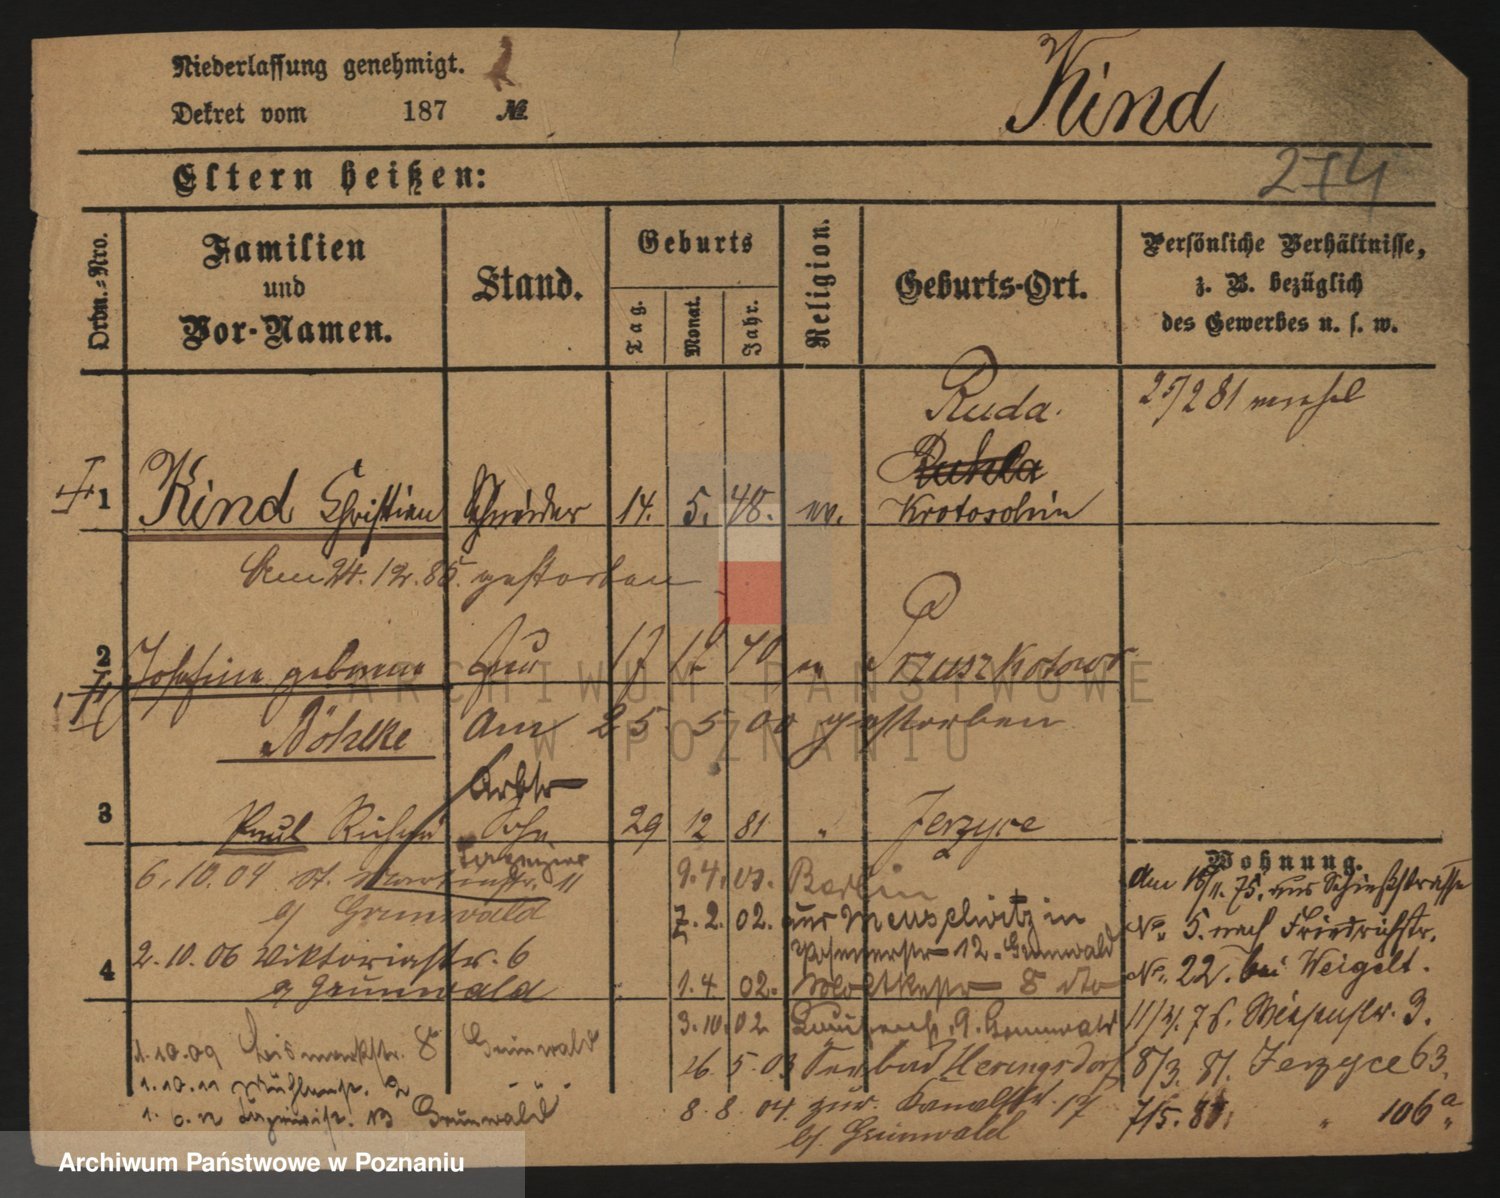 Niederlassung genehmigt.
Dekret vom 187 №
Kind
274
Eltern heißen:
Ordn.-Nro.
Familien
und
Vor-Namen.
Stand.
Geburts
Tag.
Monat.
Jahr.
Religion.
Geburts-Ort.
Persönliche Verhältnisse,
z. B. bezüglich
des Gewerbes u. s. w.
Ruda.
25/2 81
1 Kind Christian Schneider 14. 5. 48. ev. Krotoschin
Am 24.12.85. gestorben
2 Josefine geborene Frau 17 12 40 ev Pruszkotowo
Böhlke Am 25. 5 00 gestorben
Arbtr
3 Paul Sohn 29 12 81 " Jerzyce
Wohnung.
6.10.04 St. Martinstr. 11
b/ Grunwald
9.4.07. Berlin
7.2.02. aus Meuschwitz in
12. Grunwald
Am 16/11.75. aus Schießstrasse
No. 5. nach Friedrichstr.
No. 22. bei Weigelt.
2.10.06 Viktoriastr. 6
4 Grunwald
1.4 02. Moltkestr 8 dto
3.10.02 9. Grunwald
26.5.03 Seebad Heringsdorf
8.8.04. zur. Kanalstr. 17
b/ Grunwald
1.10.09 Bismarkstr. 8 Grunwald
1.10.11 2 " "
1.6.12 13 Grunwald
11/4.76. Wiesenstr. 3.
8/3. 81. Jerzyce 63.
7/5. 81. " 106a
ARCHIWUM PAŃSTWOWE
W POZNANIU
Archiwum Państwowe w Poznaniu